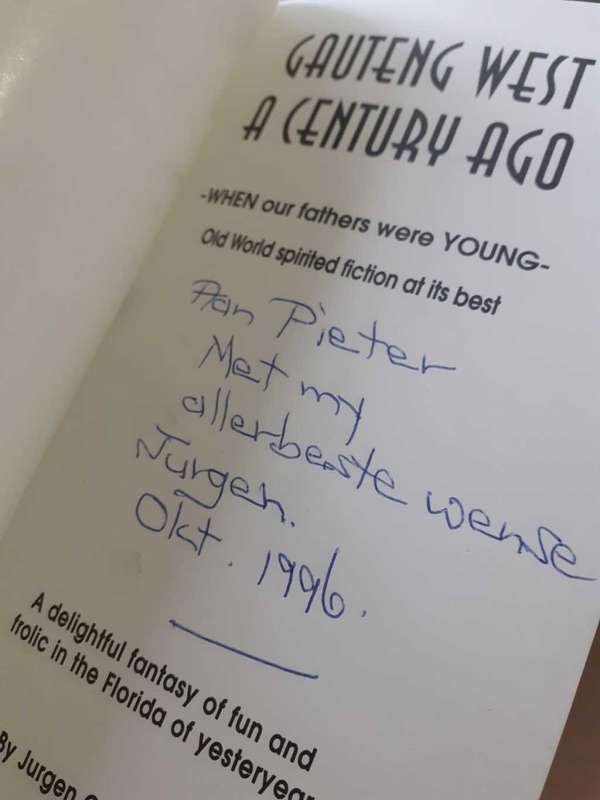 GAUTENG WEST
A CENTURY AGO
-WHEN our fathers were YOUNG-
Old World spirited fiction at its best
Aan Pieter
Met my
allerbeste wense
Jurgen.
Okt. 1996.
A delightful fantasy of fun and
frolic in the Florida of yesteryear
By Jurgen